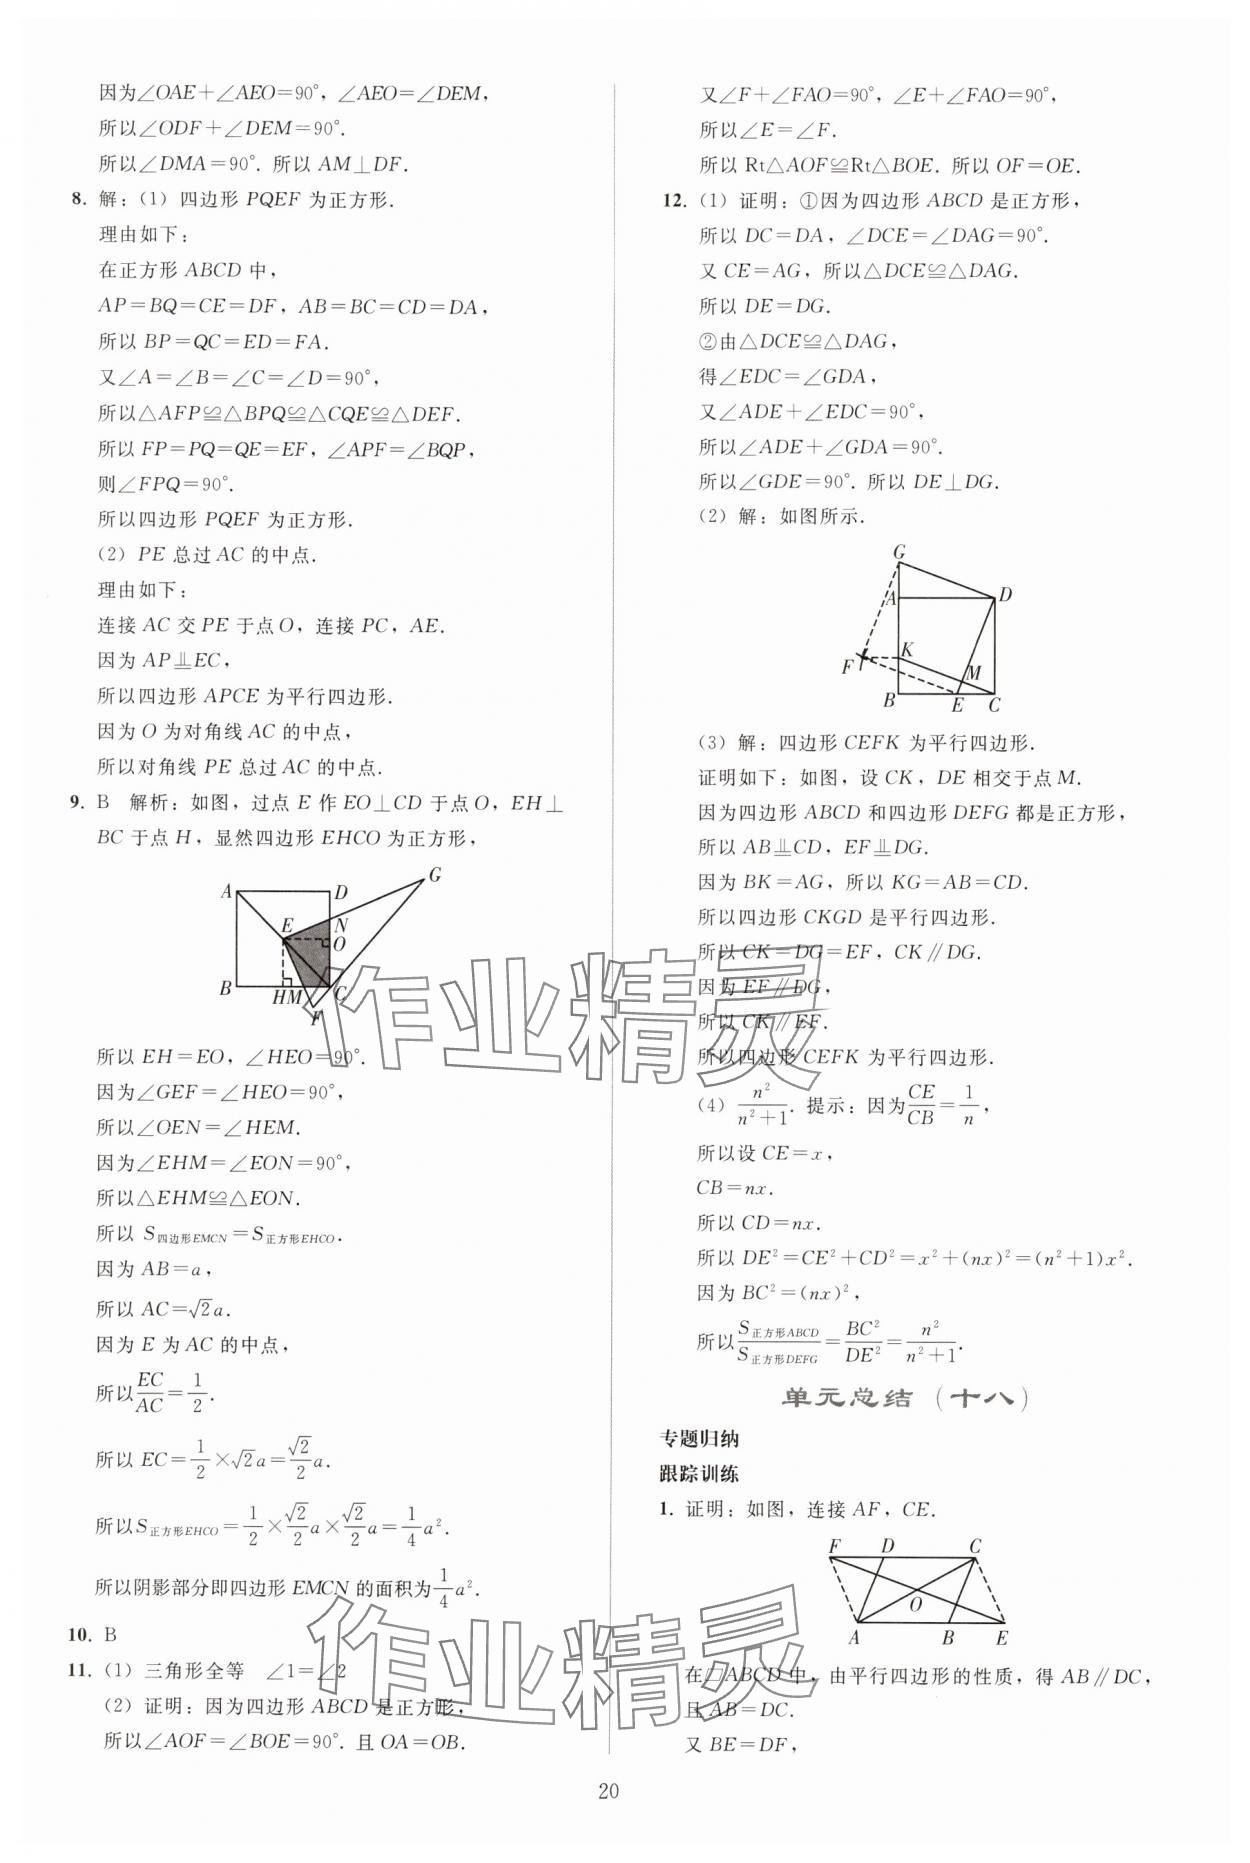 因为∠OAE+∠AEO=90°,∠AEO=∠DEM,
所以∠ODF+∠DEM=90°.
所以∠DMA=90°. 所以 AM⊥DF.
8. 解:(1) 四边形 PQEF 为正方形.
理由如下:
在正方形 ABCD 中,
AP=BQ=CE=DF, AB=BC=CD=DA,
所以 BP=QC=ED=FA.
又∠A=∠B=∠C=∠D=90°,
所以△AFP≌△BPQ≌△CQE≌△DEF.
所以 FP=PQ=QE=EF,∠APF=∠BQP,
则∠FPQ=90°.
所以四边形 PQEF 为正方形.
(2) PE 总过 AC 的中点.
理由如下:
连接 AC 交 PE 于点 O,连接 PC, AE.
因为 AP⫫EC,
所以四边形 APCE 为平行四边形.
因为 O 为对角线 AC 的中点,
所以对角线 PE 总过 AC 的中点.
9. B 解析:如图,过点 E 作 EO⊥CD 于点 O,EH⊥
BC 于点 H,显然四边形 EHCO 为正方形,
G
A D
E N
O
B HM C
F
所以 EH=EO,∠HEO=90°.
因为∠GEF=∠HEO=90°,
所以∠OEN=∠HEM.
因为∠EHM=∠EON=90°,
所以△EHM≌△EON.
所以 S四边形EMCN=S正方形EHCO.
因为 AB=a,
所以 AC=√2a.
因为 E 为 AC 的中点,
所以EC/AC=1/2.
所以 EC=1/2×√2a=√2/2 a.
所以S正方形EHCO=1/2×√2/2 a×√2/2 a=1/4 a².
所以阴影部分即四边形 EMCN 的面积为1/4 a².
10. B
11. (1) 三角形全等 ∠1=∠2
(2) 证明:因为四边形 ABCD 是正方形,
所以∠AOF=∠BOE=90°. 且 OA=OB.
又∠F+∠FAO=90°,∠E+∠FAO=90°,
所以∠E=∠F.
所以 Rt△AOF≌Rt△BOE. 所以 OF=OE.
12. (1) 证明:①因为四边形 ABCD 是正方形,
所以 DC=DA,∠DCE=∠DAG=90°.
又 CE=AG,所以△DCE≌△DAG.
所以 DE=DG.
②由△DCE≌△DAG,
得∠EDC=∠GDA,
又∠ADE+∠EDC=90°,
所以∠ADE+∠GDA=90°.
所以∠GDE=90°. 所以 DE⊥DG.
(2) 解:如图所示.
G
A D
K
F M
B E C
(3) 解:四边形 CEFK 为平行四边形.
证明如下:如图,设 CK, DE 相交于点 M.
因为四边形 ABCD 和四边形 DEFG 都是正方形,
所以 AB⫫CD, EF⫫DG.
因为 BK=AG,所以 KG=AB=CD.
所以四边形 CKGD 是平行四边形.
所以 CK=DG=EF,CK∥DG.
因为 EF∥DG,
所以 CK∥EF.
所以四边形 CEFK 为平行四边形.
(4) n²/(n²+1). 提示:因为CE/CB=1/n,
所以设 CE=x,
CB=nx.
所以 CD=nx.
所以 DE²=CE²+CD²=x²+(nx)²=(n²+1)x².
因为 BC²=(nx)²,
所以S正方形ABCD/S正方形DEFG=BC²/DE²=n²/(n²+1).
单元总结(十八)
专题归纳
跟踪训练
1. 证明:如图,连接 AF, CE.
F D C
O
A B E
在▱ABCD 中,由平行四边形的性质,得 AB∥DC,
且 AB=DC.
又 BE=DF,
20
作业精灵
作业精灵